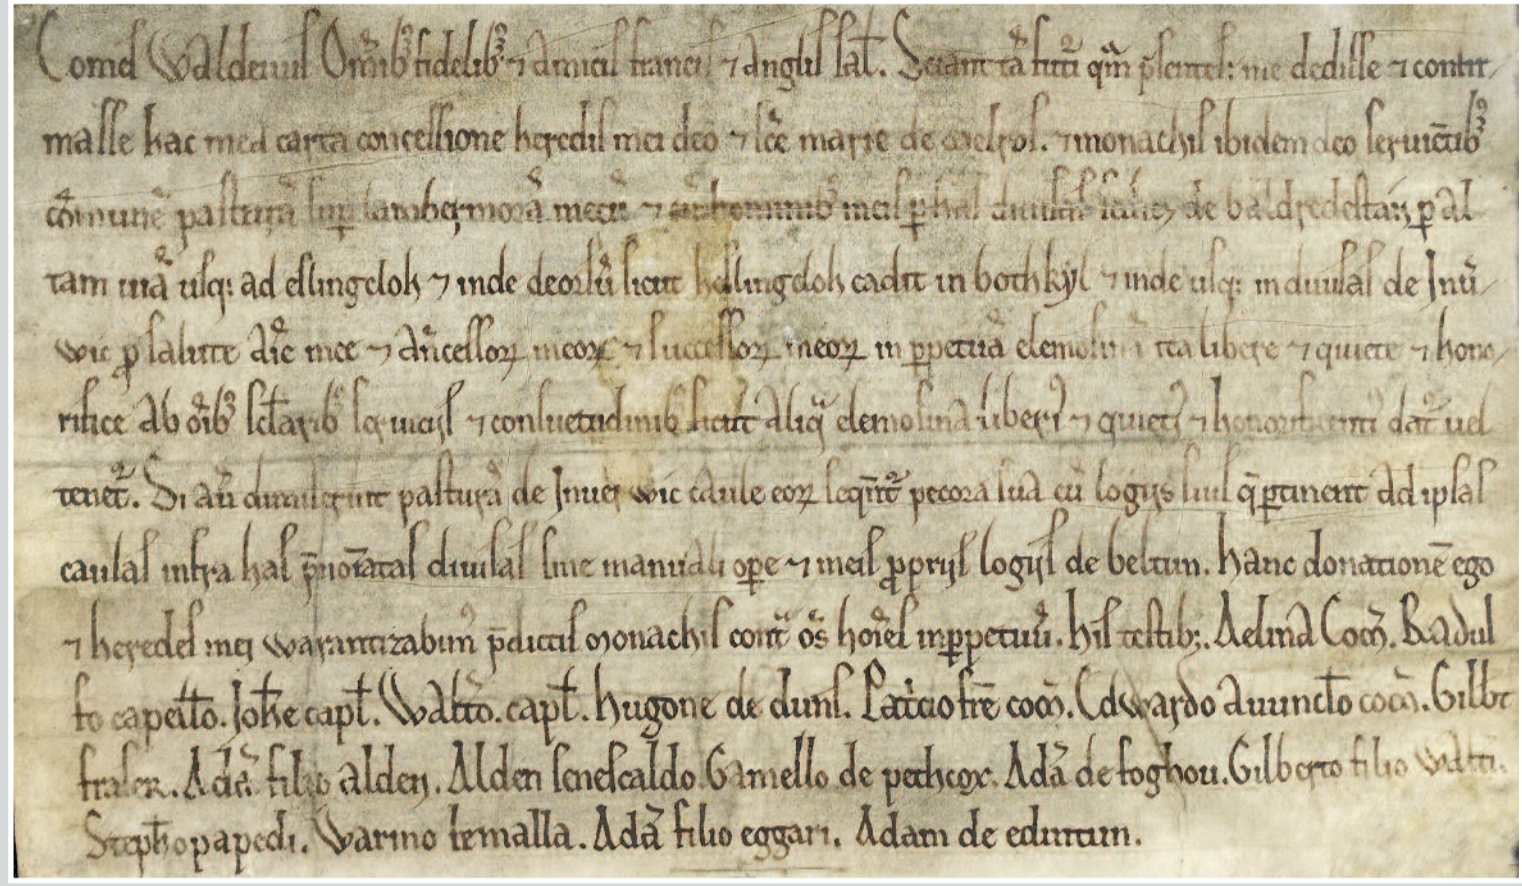 Comes Waldeuus Om̄ib; fidelib; ⁊ Amicis francis ⁊ Anglis sal̄t. Sciant tā futi̾ qm̄ p̄sentes: me dedisse ⁊ confir/
masse hac mea carta concessione heredis mei deo ⁊ sc̄e marie de Melros. ⁊ monachis ibidem deo seruiētib;
cōmunē pasturā sup̱ lambermorā mecū ⁊ cū hominib; meis p̱ has diuisas scilicet de baldredestan p̱ al
tam uiā usq; ad eslingeloh ⁊ inde deorsū sicut heslingeloh cadit in bothkyl ⁊ inde usq; in diuisas de Inū/
wic ꝓ salute aīe mee ⁊ Ancessoꝝ meoꝝ ⁊ successoꝝ meoꝝ in p̱petuā elemosinā ita libere ⁊ quiete ⁊ hono/
rifice Ab oīb; sclārib; seruiciis ⁊ consuetudinib; sicut Aliq̄ elemosina liberi᾿ ⁊ quieti᾿ ⁊ honorificenti᾿ dat᾿ uel
tenet᾿. Si aū dimiserint pasturā de Inuerwic caule eoꝝ seqn̄t᾿ pecora sua cū logiis suis q̄ p̱tinent Ad ipsas
caulas infra has p̄noīatas diuisas sine manuali op̱e ⁊ meis ꝓpriis logiis de beltun. hanc donationē ego
⁊ heredes mei warantizabim᾿ p̄dictis monachis cont̾ om̄s hoīes inp̱petuū. his testib;. Aelina Com̄. Radul
fo capell̄o. Joh̄e capl̄. Walt̄o. capl̄. hugone de duns. Pat̾cio fr̄e com̄. Edwardo Auuncl̄o com̄. Gilb̄t
fraser. Adā filio alden. Alden senescaldo. Gamello de pethcox. Adā de foghou. Gilberto filio walt̄i.
Steph̄o papedi. Warino le malla. Adā filio eggari. Adam de edintun.